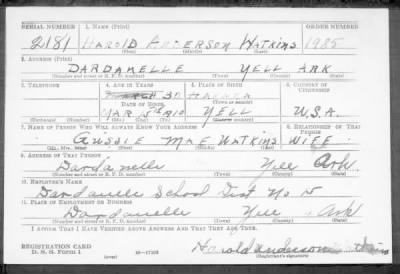 SERIAL NUMBER 1. NAME (Print) ORDER NUMBER
2181 HAROLD ANDERSON WATKINS 1985
(First) (Middle) (Last)
2. ADDRESS (Print)
DARDANELLE YELL ARK
(Number and street or R. F. D. number) (Town) (County) (State)
3. TELEPHONE 4. AGE IN YEARS 5. PLACE OF BIRTH 6. COUNTRY OF CITIZENSHIP
30 HAVANA
DATE OF BIRTH (Town or county)
MAR 5th 1910 YELL U.S.A.
(Exchange) (Number) (Mo.) (Day) (Yr.) (State or country)
7. NAME OF PERSON WHO WILL ALWAYS KNOW YOUR ADDRESS 8. RELATIONSHIP OF THAT PERSON
AUSSIE MAE WATKINS WIFE
(Mr., Mrs., Miss) (First) (Middle) (Last)
9. ADDRESS OF THAT PERSON
Dardanelle Yell Ark
(Number and street or R. F. D. number) (Town) (County) (State)
10. EMPLOYER'S NAME
Dardanelle School Dist No 15
11. PLACE OF EMPLOYMENT OR BUSINESS
Dardanelle Yell Ark
(Number and street or R. F. D. number) (Town) (County) (State)
I AFFIRM THAT I HAVE VERIFIED ABOVE ANSWERS AND THAT THEY ARE TRUE.
REGISTRATION CARD
D. S. S. Form 1 (over) 16—17105 Harold Anderson Watkins
(Registrant's signature)